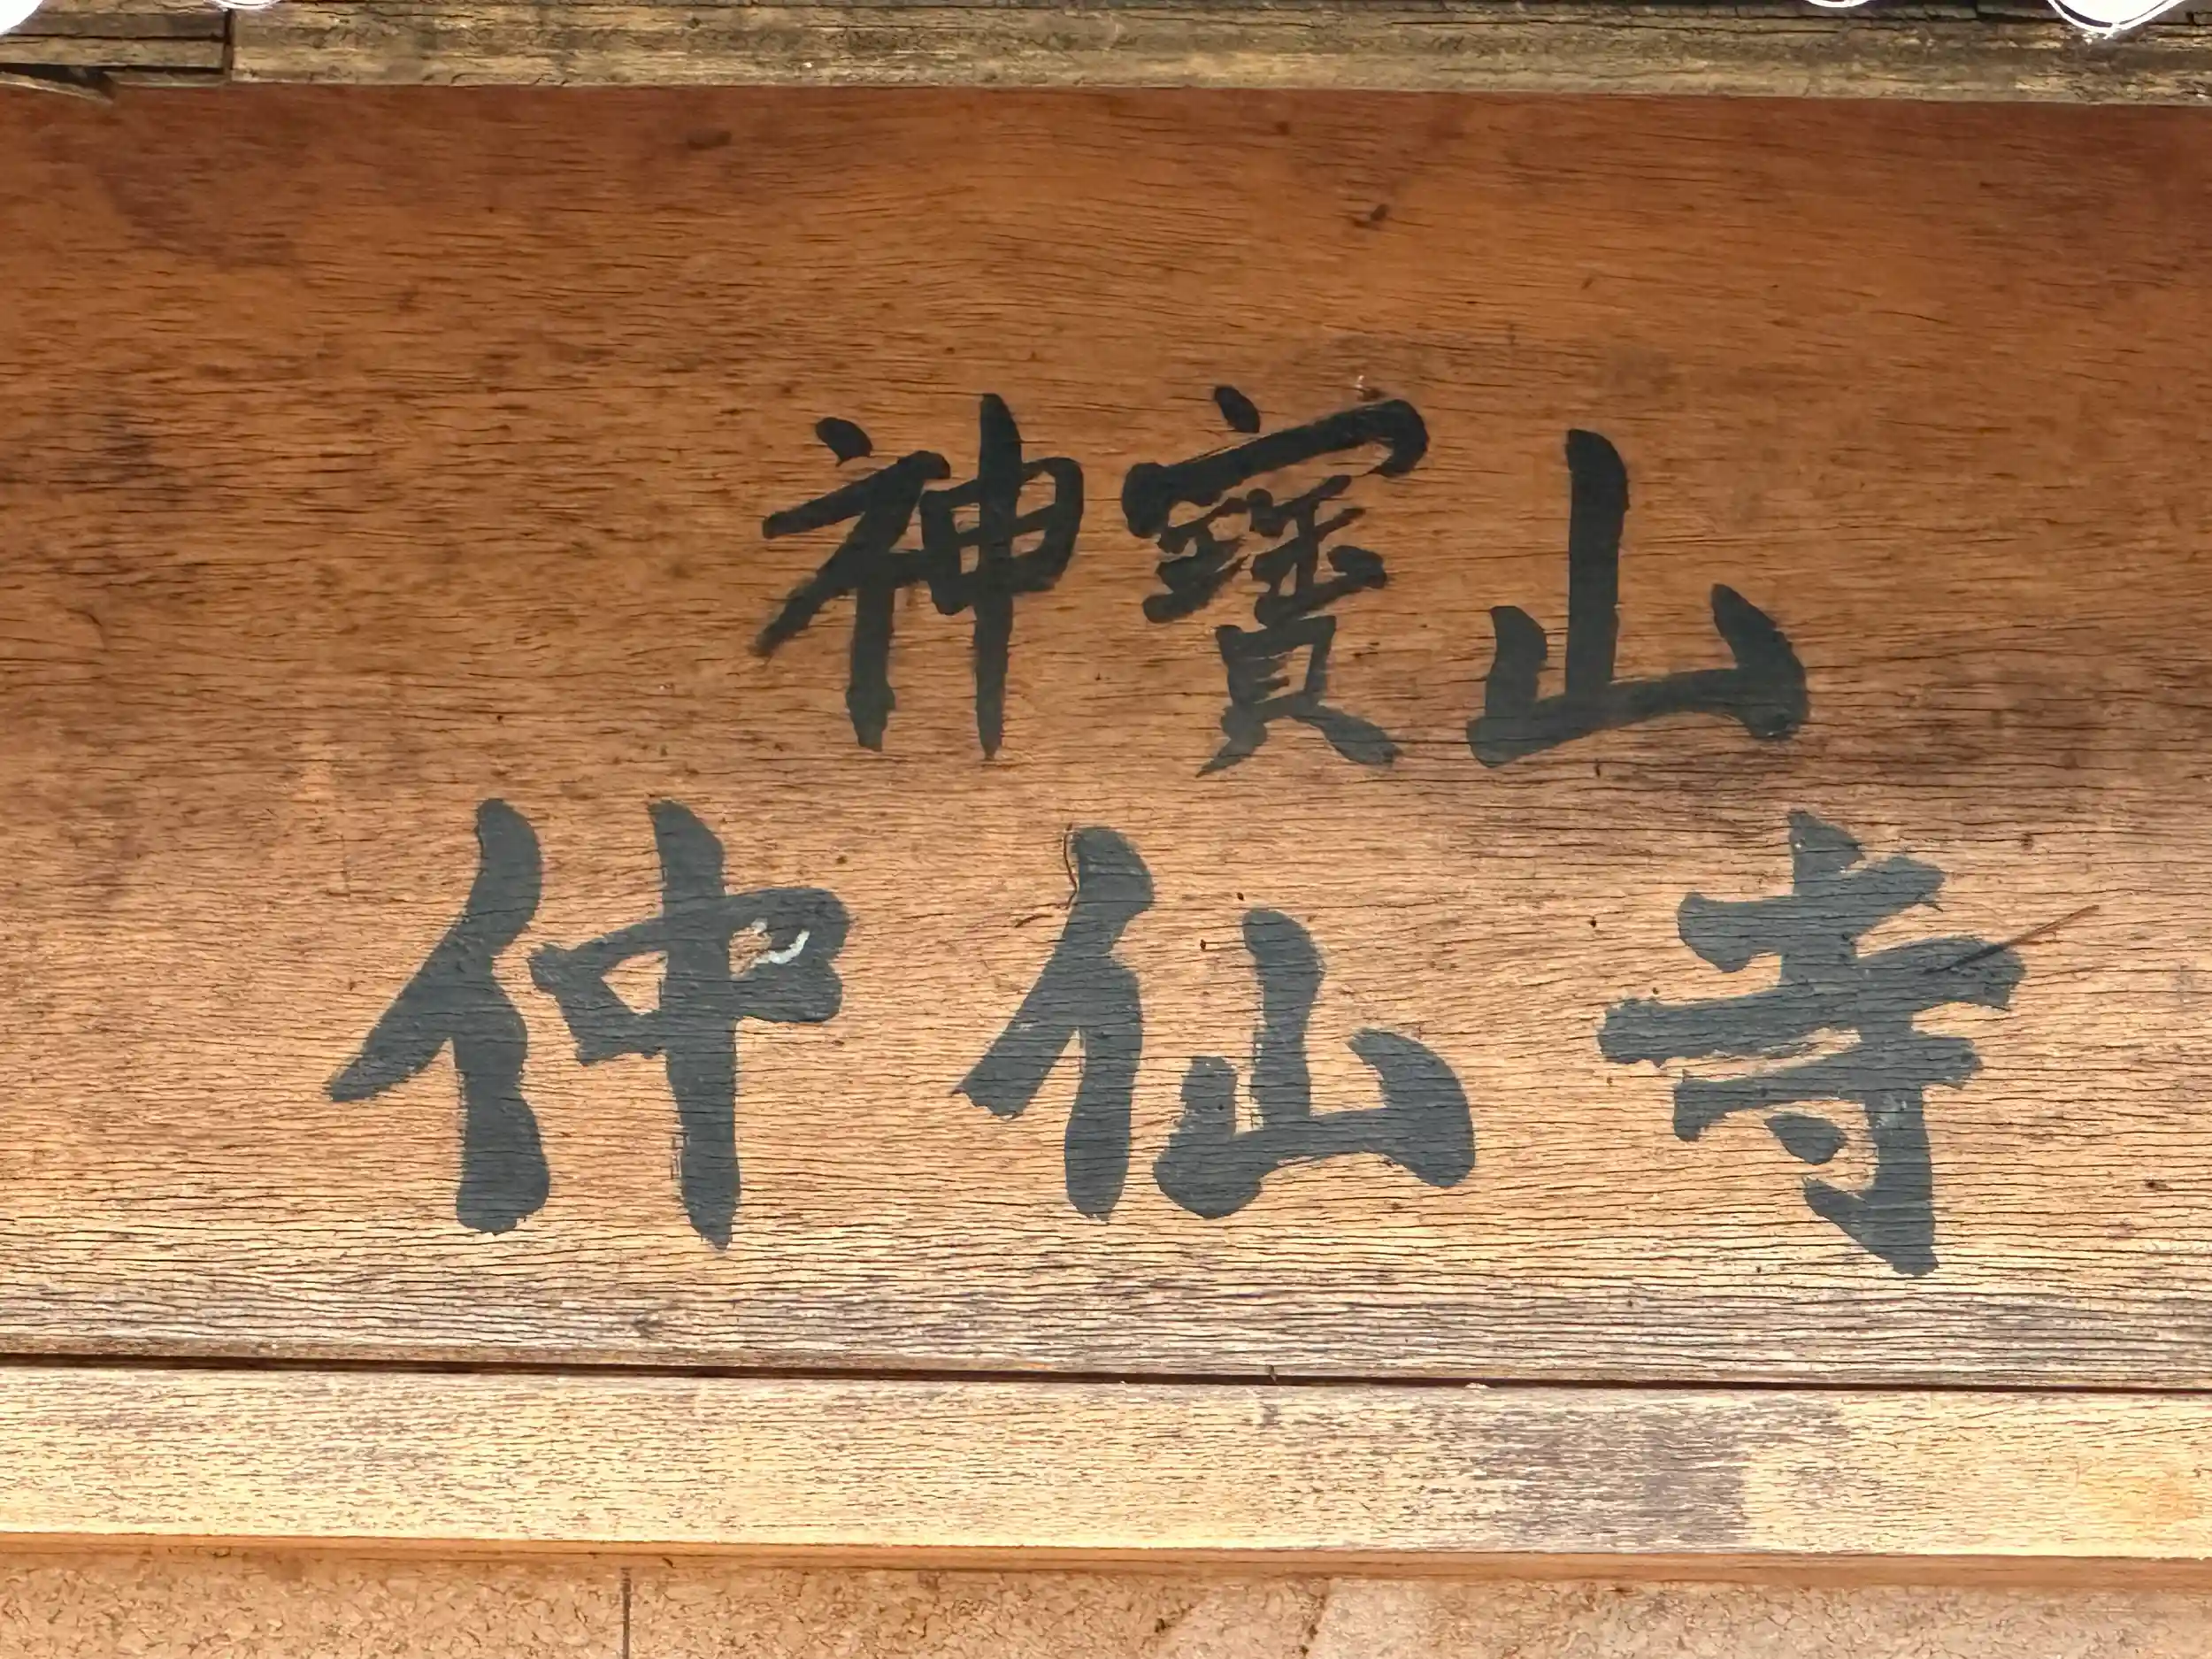 神寶山
仲仙寺